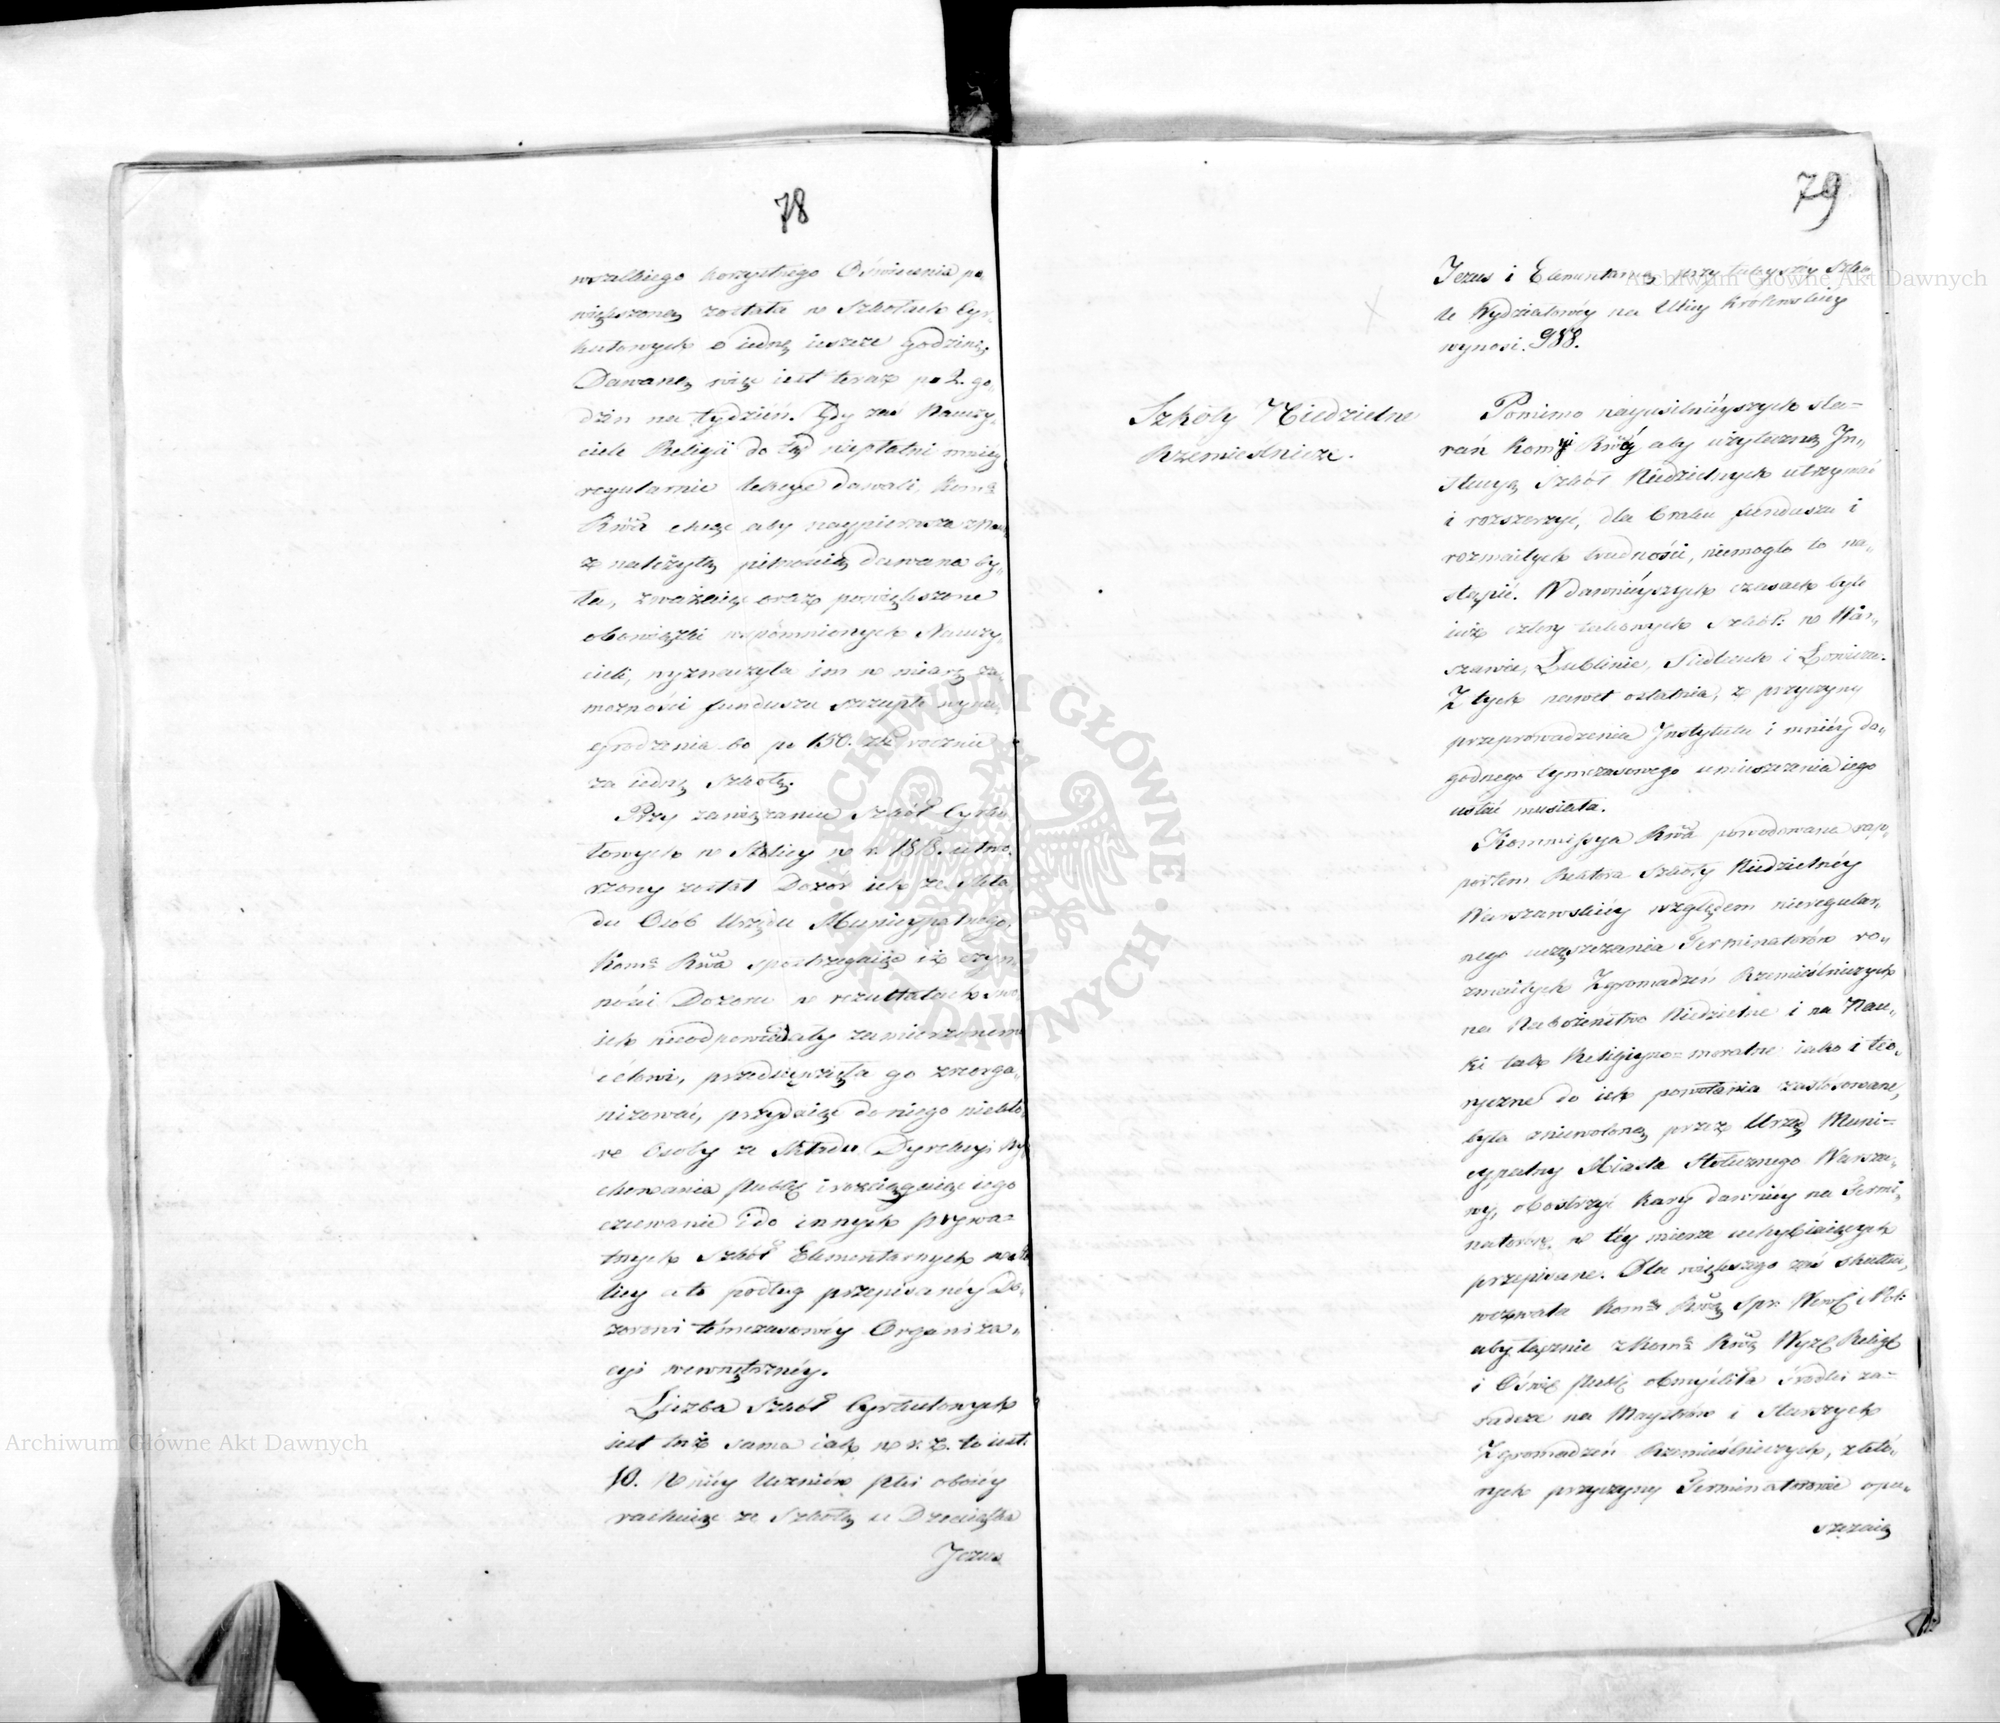 78
wszelkiego korzystnego Oświecenia po„
większoną została w Szkołach Cyr„
kułowych o iednę ieszcze godzinę,
Dawaną więc iest teraz po 2. go„
dzin na tydzień. Gdy zaś Nauczy„
ciele Religii do tąd niepłatni mniéy
regularnie lekcye dawali, Komª
Rwª chcąc aby naypierwsza z Nauk
z należytą pilnością dawana by„
ła, zważaiąc oraz powiększone
obowiązki wspomnionych Nauczy„
cieli, wyznaczyła im w miarę za„
możności funduszu szczupłe wyna„
grodzenia bo po 150. złp rocznie
za iednę Szkołę.
Przy zawiązaniu Szkół Cyrku„
łowych w Stolicy w r. 1818. utwo„
rzony został Dozor ich ze Skła„
du Osób Urzędu Municypalnego.
Komª Rwª spostrzegaiąc iż czyn„
ności Dozoru w rezultatach swo„
ich nieodpowiadały zamierzonemu
celowi, przedsięwzięła go zreorga„
nizować, przydaiąc do niego niektó„
re Osoby ze Składu Dyrekcyi Wy„
chowania Publ: i rozciągaiąc iego
czuwanie i do innych prywa=
tnych Szkół Elementarnych w Sto„
licy a to podług przepisanéy Do„
zorowi tymczasowéy Organiza„
cyi wewnętrznéy.
Liczba Szkół Cyrkułowych
iest taż sama iak w r. z. to iest:
10. W niéy Uczniów płci oboiéy
rachuiąc ze Szkołą u Dzieciątka
Jezus
79
Jezus i Elementarną przy tuteyszéy Szko„
le Wydziałowéy na Ulicy Królewskiéy
wynosi. 988.
Szkoły Niedzielne
Rzemieślnicze.
Pomimo nayusilnieyszych sta=
rań Komyi Rwéy aby użyteczną In„
stytucyą Szkół Niedzielnych utrzymać
i rozszerzyć, dla braku funduszu i
rozmaitych trudności, niemogło to na„
stąpić. W dawnieyszych czasach było
iuż cztery takowych Szkół: w War„
szawie, Lublinie, Siedlcach i Łowiczu.
Z tych nawet ostatnia, z przyczyny
przeprowadzenia Instytutu i mniéy do„
godnego tymczasowego umieszczenia iego
ustać musiała.
Kommissya Rwª powodowana rap„
portem Rektora Szkoły Niedzielnéy
Warszawskiéy względem nieregular„
nego uczęszczania Terminatorów ro„
zmaitych Zgromadzeń Rzemieślniczych
na Nabożeństwo Niedzielne i na Nau„
ki tak Religiyno=moralne iako i teo„
ryczne do ich powołania zastosowane,
była zniewoloną przez Urząd Muni=
cypalny Miasta Stołecznego Warsza„
wy, obostrzyć kary dawniéy na Termi„
natorow w téy mierze uchybiaiących
przepisane. Dla większego zaś skutku,
wezwała Komª Rwą Spr: Wewę: i Pol:
aby łącznie z Komª Rwą Wyzń: Religń:
i Ośwę: Publ: obmyśliła środki za=
radcze na Maystrów i Starszych
Zgromadzeń Rzemieślniczych, z któ„
rych przyczyny Terminatorowie opu„
szczaią
Archiwum Główne Akt Dawnych
Archiwum Główne Akt Dawnych
ARCHIWUM GŁÓWNE • AKT DAWNYCH •